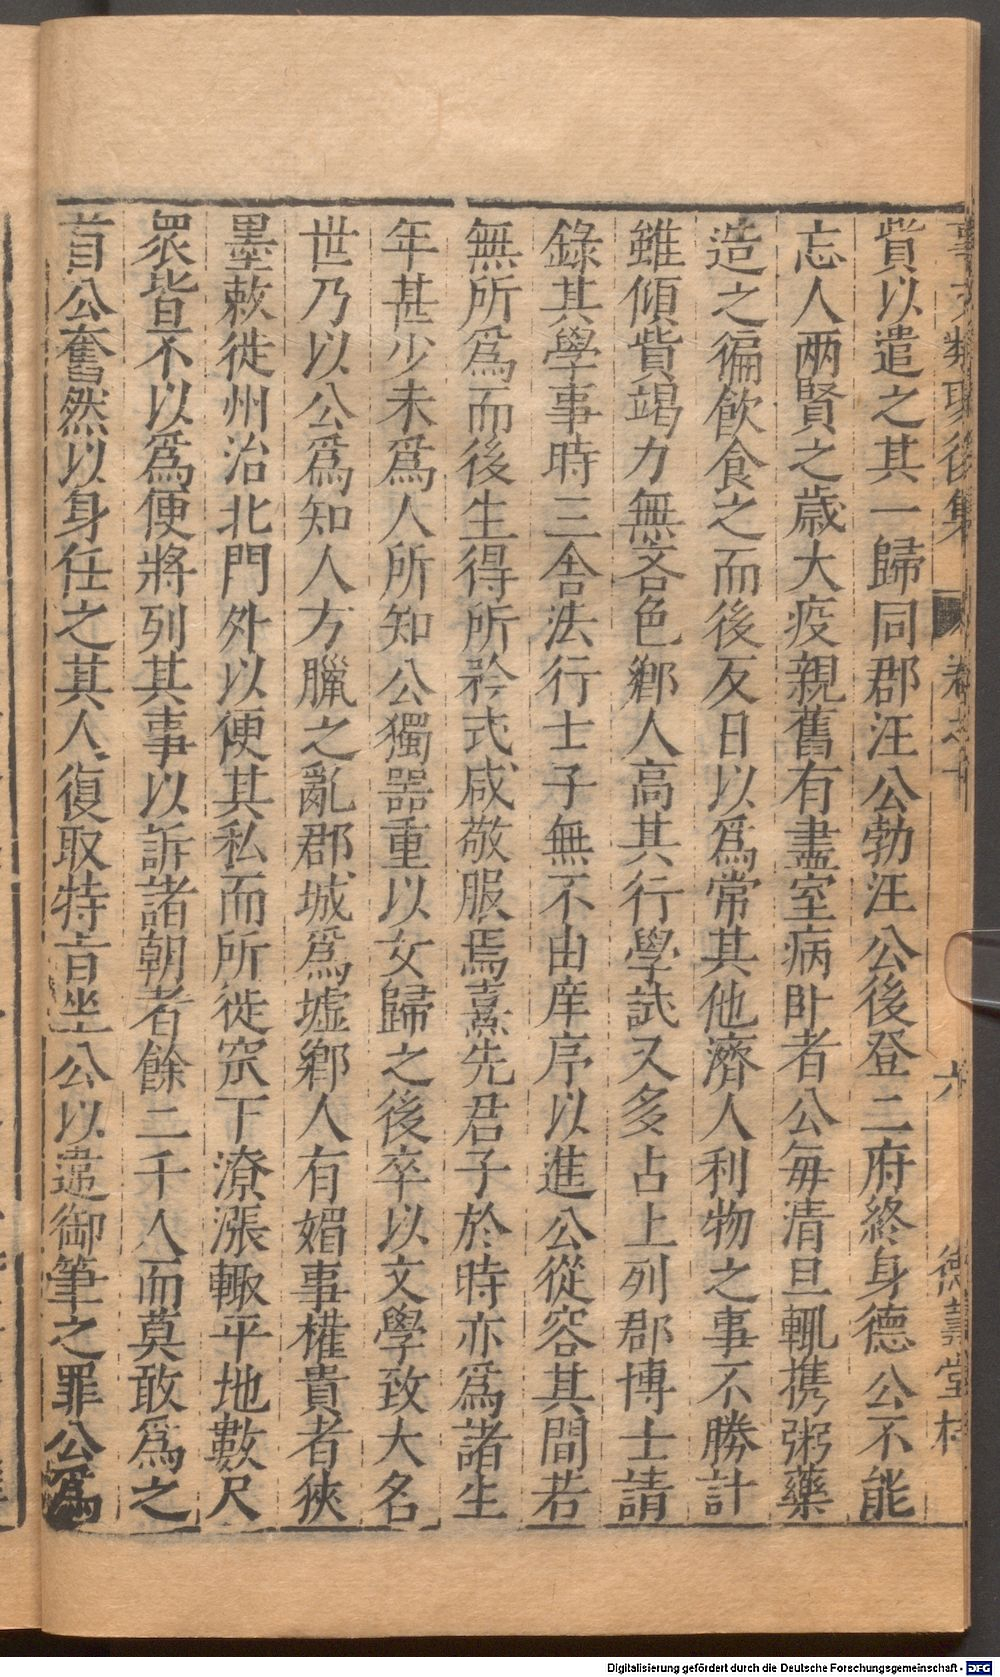 事文類聚後集 卷之十 六 德壽堂梓
貲以遣之其一歸同郡汪公勃汪公後登二府終身德公不能
忘人两賢之歲大疫親舊有盡室病卧者公每清旦輒携粥藥
造之徧飲食之而後反日以爲常其他濟人利物之事不勝計
雖傾貲竭力無吝色鄉人高其行學試又多占上列郡博士請
錄其學事時三舎法行士子無不由庠序以進公從容其間若
無所爲而後生得所矜式咸敬服焉熹先君子於時亦爲諸生
年甚少未爲人所知公獨器重以女歸之後卒以文學致大名
世乃以公爲知人方臘之亂郡城爲墟鄉人有媚事權貴者挾
墨敕徙州治北門外以便其私而所徙窊下潦漲輙平地數尺
衆皆不以爲便將列其事以訴諸朝者餘二千人而莫敢爲之
首公奮然以身任之其人復取特旨坐公以違御筆之罪公爲
Digitalisierung gefördert durch die Deutsche Forschungsgemeinschaft - DFG